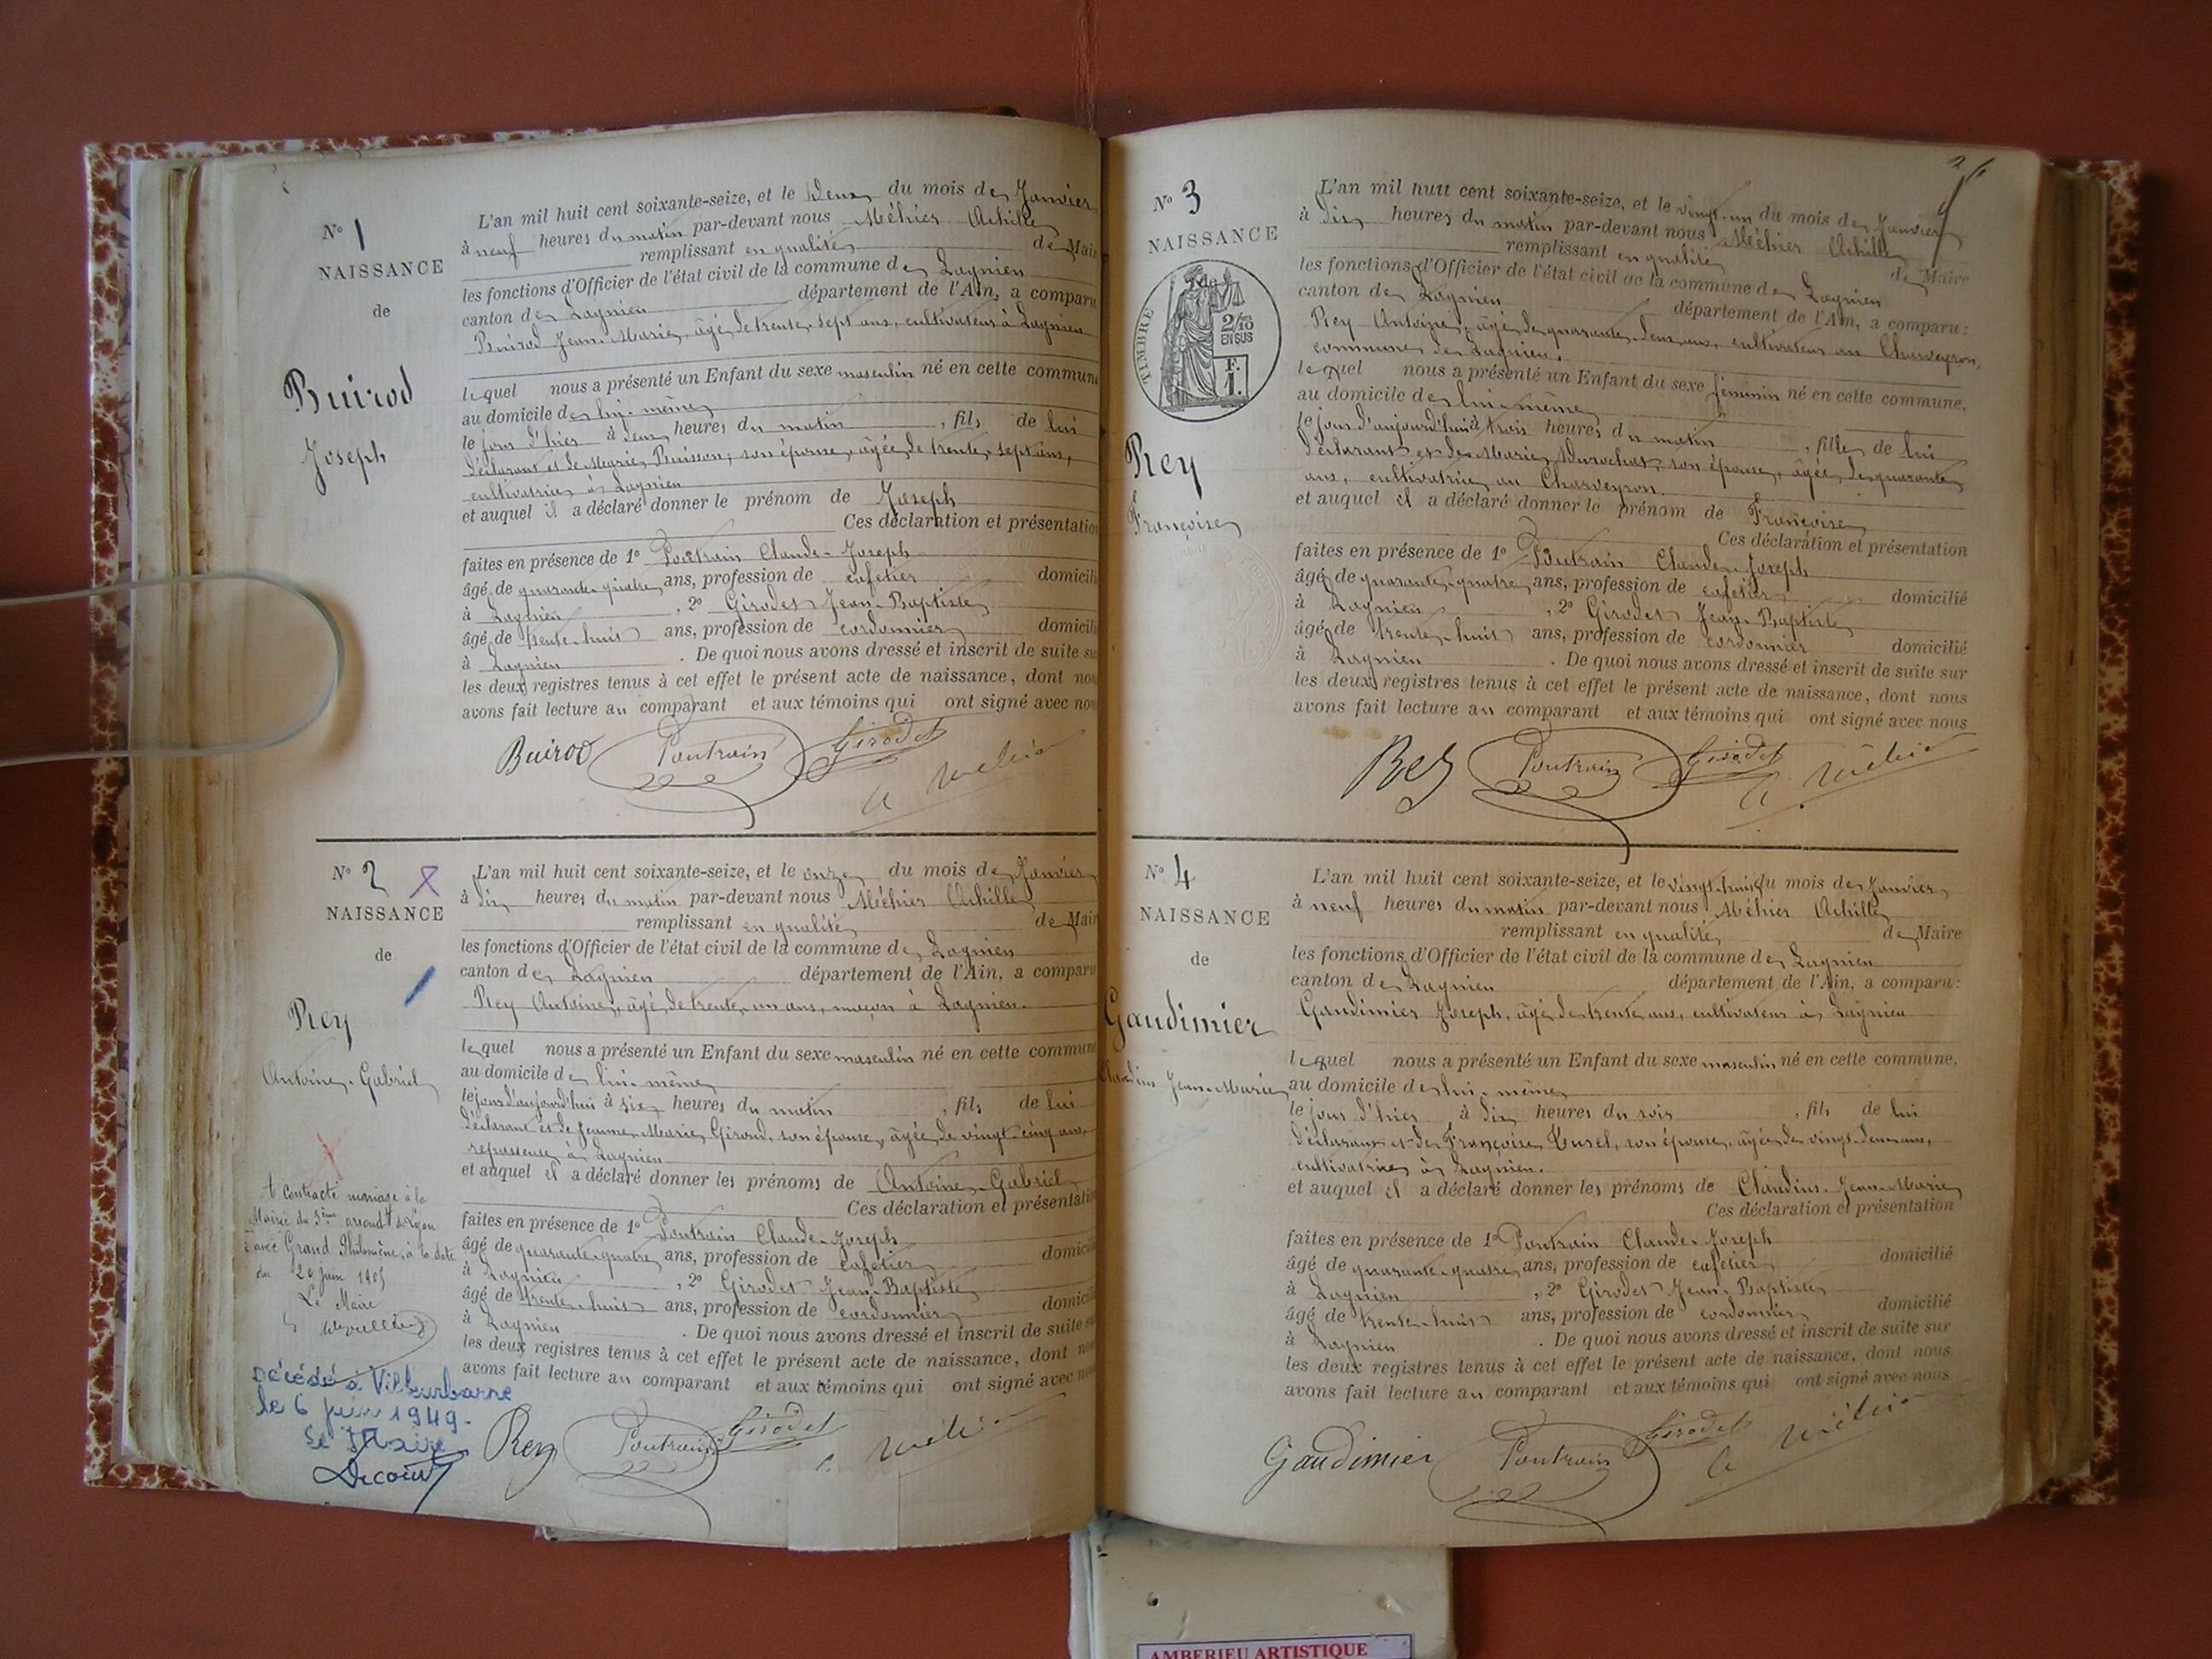 N° 1
NAISSANCE
de
Buirod
Joseph
L'an mil huit cent soixante-seize, et le deux du mois de Janvier
à neuf heures du matin par-devant nous Méhier Achille
remplissant en qualité de Mair
les fonctions d'Officier de l'état civil de la commune de Lagnieu
canton de Lagnieu département de l'Ain, a comparu
Buirod Jean-Marie, âgé de trente-sept ans, cultivateur à Lagnieu
lequel nous a présenté un Enfant du sexe masculin né en cette commune
au domicile de lui-même
le jour d'hier à deux heures du matin, fils de lui
déclarant et de Marie Buisson, son épouse, âgée de trente-sept ans,
cultivatrice à Lagnieu
et auquel il a déclaré donner le prénom de Joseph
Ces déclaration et présentation
faites en présence de 1° Poutrain Claude-Joseph
âgé de quarante-quatre ans, profession de cafetier domicili
à Lagnieu, 2° Girodet Jean-Baptiste
âgé de trente-huit ans, profession de cordonnier domicili
à Lagnieu. De quoi nous avons dressé et inscrit de suite su
les deux registres tenus à cet effet le présent acte de naissance, dont nou
avons fait lecture au comparant et aux témoins qui ont signé avec nou
Buirod Poutrain Girodet A Méhier
N° 2
NAISSANCE
de
Rey
Antoine-Gabriel
A contracté mariage à la
Mairie du 3ème arrondt de Lyon
avec Grand Philomène, à la date
du 20 juin 1905
Le Maire
Décédé à Villeurbanne
le 6 juin 1949.
Le Maire
L'an mil huit cent soixante-seize, et le onze du mois de Janvier
à dix heures du matin par-devant nous Méhier Achille
remplissant en qualité de Mair
les fonctions d'Officier de l'état civil de la commune de Lagnieu
canton de Lagnieu département de l'Ain, a comparu
Rey Antoine, âgé de trente-un ans, maçon à Lagnieu.
lequel nous a présenté un Enfant du sexe masculin né en cette commune
au domicile de lui-même
le jour d'aujourd'hui à six heures du matin, fils de lui
déclarant et de Jeanne-Marie Giroud, son épouse, âgée de vingt-cinq ans,
repasseuse à Lagnieu
et auquel il a déclaré donner les prénoms de Antoine-Gabriel
Ces déclaration et présentation
faites en présence de 1° Poutrain Claude-Joseph
âgé de quarante-quatre ans, profession de cafetier domicili
à Lagnieu, 2° Girodet Jean-Baptiste
âgé de trente-huit ans, profession de cordonnier domicili
à Lagnieu. De quoi nous avons dressé et inscrit de suite su
les deux registres tenus à cet effet le présent acte de naissance, dont n
avons fait lecture au comparant et aux témoins qui ont signé avec no
Rey Poutrain Girodet A Méhier
N° 3
NAISSANCE
de
TIMBRE
2/10
EN SUS
F.
1.
Rey
Françoise
L'an mil huit cent soixante-seize, et le vingt-un du mois de Janvier
à dix heures du matin par-devant nous Méhier Achille
remplissant en qualité de Maire
les fonctions d'Officier de l'état civil de la commune de Lagnieu
canton de Lagnieu département de l'Ain, a comparu :
Rey Antoine, âgé de quarante-deux ans, cultivateur au Charveyron,
commune de Lagnieu.
lequel nous a présenté un Enfant du sexe féminin né en cette commune,
au domicile de lui-même
le jour d'aujourd'hui à trois heures du matin, fille de lui
déclarant et de Marie Durochat, son épouse, âgée de quarante
ans, cultivatrice au Charveyron.
et auquel il a déclaré donner le prénom de Françoise
Ces déclaration et présentation
faites en présence de 1° Poutrain Claude-Joseph
âgé de quarante-quatre ans, profession de cafetier domicilié
à Lagnieu, 2° Girodet Jean-Baptiste
âgé de trente-huit ans, profession de cordonnier domicilié
à Lagnieu. De quoi nous avons dressé et inscrit de suite sur
les deux registres tenus à cet effet le présent acte de naissance, dont nous
avons fait lecture au comparant et aux témoins qui ont signé avec nous
Rey Poutrain Girodet A. Méhier
N° 4
NAISSANCE
de
Gaudimier
Claudius-Jean-Marie
L'an mil huit cent soixante-seize, et le vingt-huit du mois de Janvier
à neuf heures du matin par-devant nous Méhier Achille
remplissant en qualité de Maire
les fonctions d'Officier de l'état civil de la commune de Lagnieu
canton de Lagnieu département de l'Ain, a comparu :
Gaudimier Joseph, âgé de trente ans, cultivateur à Lagnieu
lequel nous a présenté un Enfant du sexe masculin né en cette commune,
au domicile de lui-même
le jour d'hier à dix heures du soir, fils de lui
déclarant et de Françoise Cusel, son épouse, âgée de vingt-deux ans,
cultivatrice à Lagnieu.
et auquel il a déclaré donner les prénoms de Claudius-Jean-Marie
Ces déclaration et présentation
faites en présence de 1° Poutrain Claude-Joseph
âgé de quarante-quatre ans, profession de cafetier domicilié
à Lagnieu, 2° Girodet Jean-Baptiste
âgé de trente-huit ans, profession de cordonnier domicilié
à Lagnieu. De quoi nous avons dressé et inscrit de suite sur
les deux registres tenus à cet effet le présent acte de naissance, dont nous
avons fait lecture au comparant et aux témoins qui ont signé avec nous
Gaudimier Poutrain Girodet A Méhier
AMBERIEU ARTISTIQUE